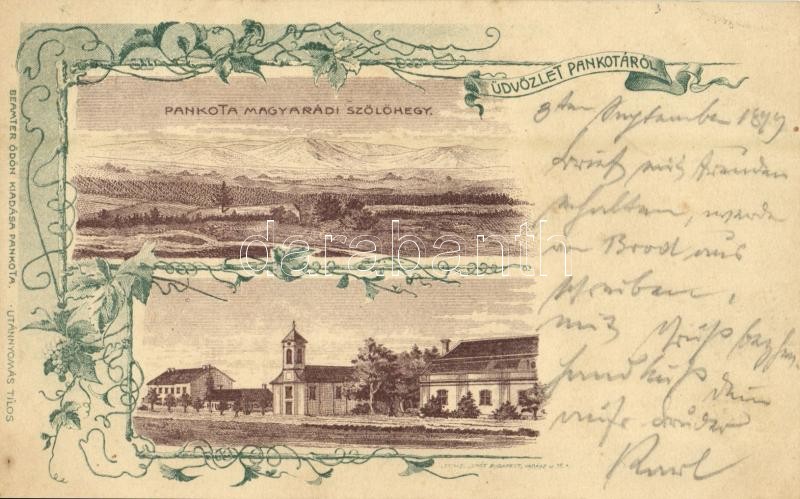 ÜDVÖZLET PANKOTÁRÓL
PANKOTA MAGYARÁDI SZŐLŐHEGY.
BEAMTER ÖDÖN KIADÁSA PANKOTA. · UTÁNNYOMÁS TILOS
darabanth
3ten September 1899
Brief mit Freuden
erhalten, werde
von Brod aus
schreiben,
mit
Handkuß
Karl